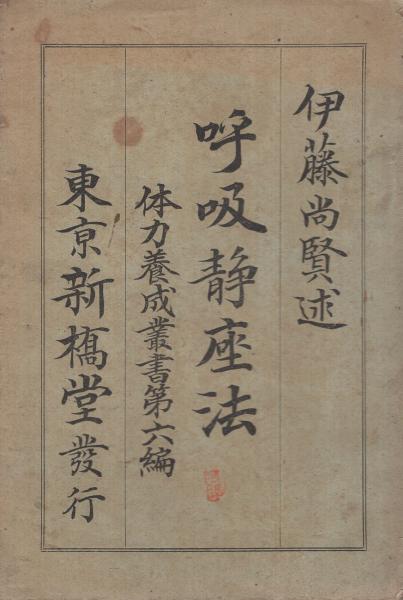 伊藤尚賢述
呼吸静座法
体力養成叢書第六編
東京新橋堂發行